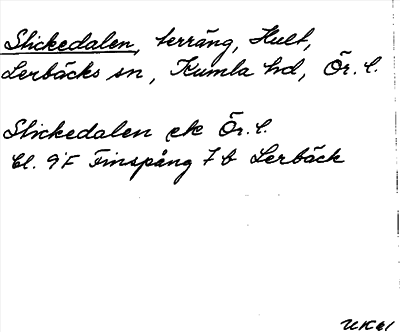 Stickedalen, terräng, Hult,
Lerbäcks sn, Kumla hd, Ör. l.
Stickedalen ek Ör. l.
bl. 9F Finspång 7 b Lerbäck